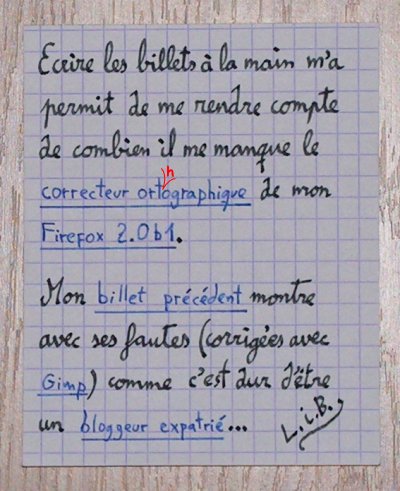 Ecrire les billets à la main m'a
permit de me rendre compte
de combien il me manque le
correcteur orthographique de mon
Firefox 2.0b1.
Mon billet précédent montre
avec ses fautes (corrigées avec
Gimp) comme c'est dur d'être
un bloggeur expatrié...
L.i.B.